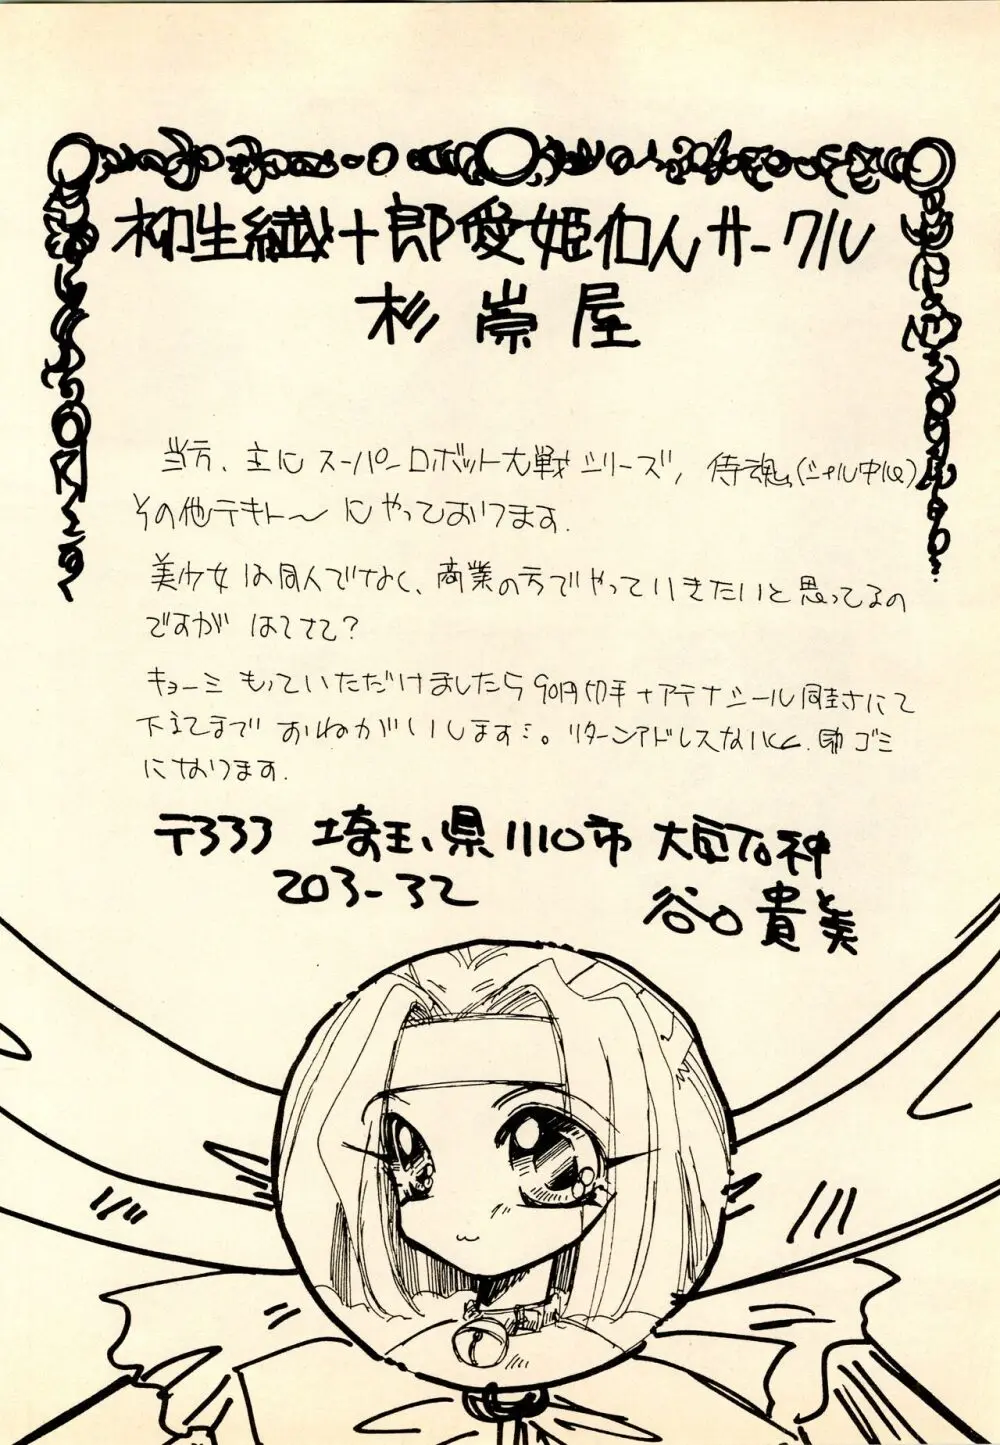 柳生繊十郎愛姫個人サークル
杉崇屋
当方、主に スーパーロボット大戦シリーズ、侍魂、(シャル中心)
その他テキト〜にやっております。
美少女は同人でなく、商業の方でやっていきたいと思ってるの
ですが はてさて?
キョーミもっていただけましたら90円切手+アテナシール同封にて
下記まで おねがいします。リターンアドレスないと 即ゴミ
になります.
〒333 埼玉県川口市
203-32 谷口貴美
と